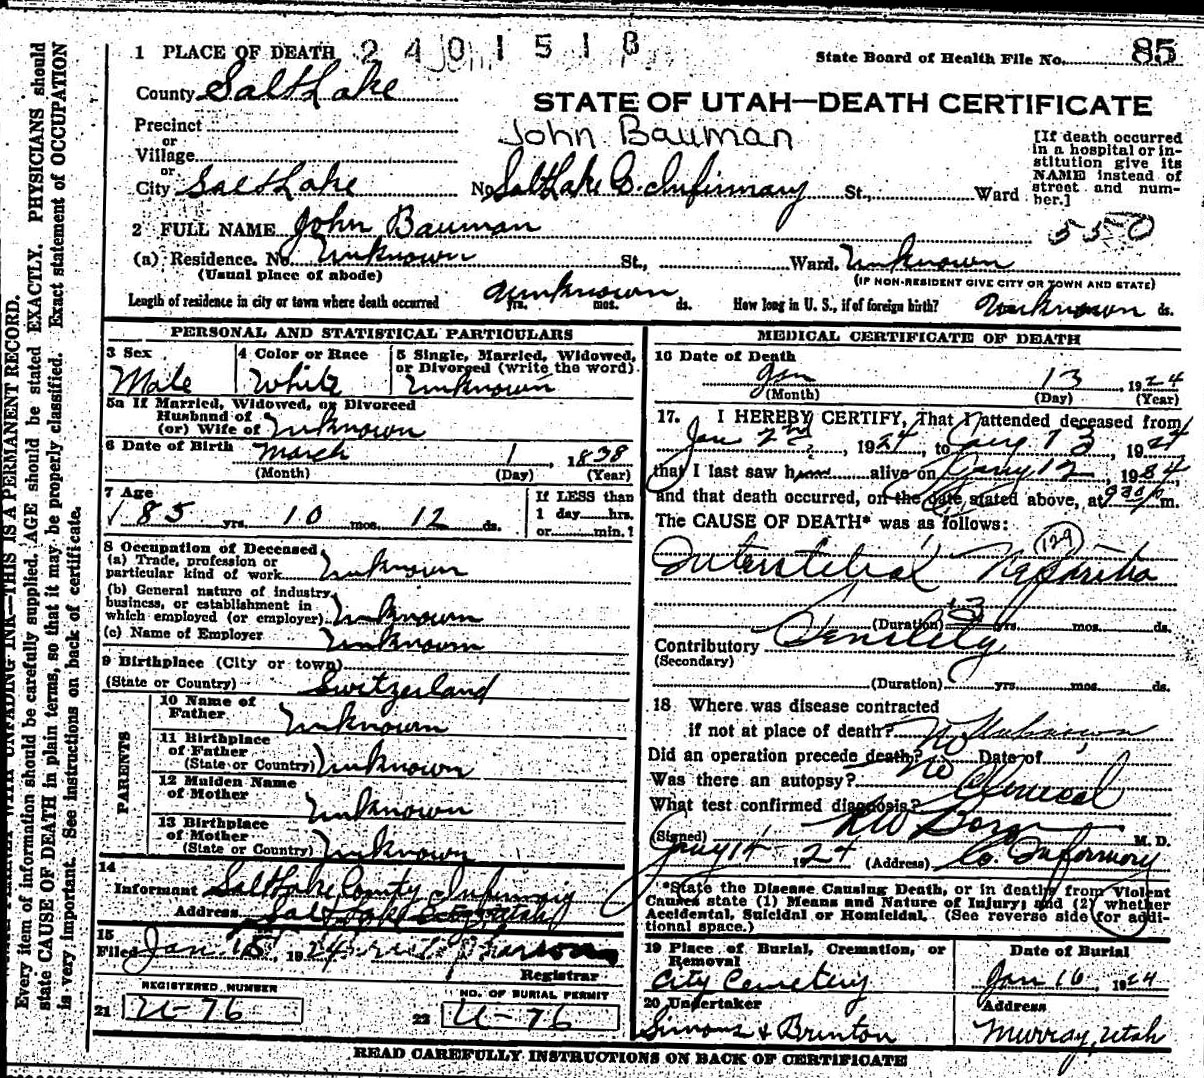 1 PLACE OF DEATH 2401518
State Board of Health File No. 85
County Salt Lake
STATE OF UTAH—DEATH CERTIFICATE
Precinct
John Bauman
or
Village
or
City Salt Lake No. Salt Lake Co. Infirmary St., Ward
[If death occurred
in a hospital or in-
stitution give its
NAME instead of
street and num-
ber.]
2 FULL NAME John Bauman 550
(a) Residence. No. Unknown St., Ward. Unknown
(Usual place of abode) (IF NON-RESIDENT GIVE CITY OR TOWN AND STATE)
Length of residence in city or town where death occurred unknown yrs. mos. ds. How long in U. S., if of foreign birth? Unknown ds.
PERSONAL AND STATISTICAL PARTICULARS
3 Sex Male
4 Color or Race White
5 Single, Married, Widowed,
or Divorced (write the word)
Unknown
5a If Married, Widowed, or Divorced
Husband of
(or) Wife of Unknown
6 Date of Birth March 1, 1838
(Month) (Day) (Year)
7 Age
85 yrs. 10 mos. 12 ds.
If LESS than
1 day hrs.
or min.?
8 Occupation of Deceased
(a) Trade, profession or
particular kind of work Unknown
(b) General nature of industry
business, or establishment in
which employed (or employer) Unknown
(c) Name of Employer Unknown
9 Birthplace (City or town)
(State or Country) Switzerland
PARENTS
10 Name of
Father Unknown
11 Birthplace
of Father
(State or Country) Unknown
12 Maiden Name
of Mother Unknown
13 Birthplace
of Mother
(State or Country) Unknown
14
Informant Salt Lake County Infirmary
Address Salt Lake City, Utah
15
Filed Jan 15, 1924
Registrar
REGISTERED NUMBER
21 U-76
NO. OF BURIAL PERMIT
22 U-76
MEDICAL CERTIFICATE OF DEATH
16 Date of Death
Jan 13, 1924
(Month) (Day) (Year)
17. I HEREBY CERTIFY, That I attended deceased from
Jan 2nd, 1924, to Jany 13, 1924
that I last saw him alive on Jany 12, 1924,
and that death occurred, on the date stated above, at 930 p m.
The CAUSE OF DEATH* was as follows:
129
Interstitial Nephritis
(Duration) 3 yrs. mos. ds.
Contributory Senility
(Secondary)
(Duration) yrs. mos. ds.
18 Where was disease contracted
if not at place of death? Unknown
Did an operation precede death? No Date of
Was there an autopsy? No
What test confirmed diagnosis? Clinical
(Signed) M. D.
Jany 14 1924 (Address) Co. Infirmary
*State the Disease Causing Death, or in deaths from Violent
Causes state (1) Means and Nature of Injury; and (2) whether
Accidental, Suicidal or Homicidal. (See reverse side for addi-
tional space.)
19 Place of Burial, Cremation, or
Removal
City Cemetery
Date of Burial
Jan 16, 1924
20 Undertaker
Simons & Brunton
Address
Murray, Utah
READ CAREFULLY INSTRUCTIONS ON BACK OF CERTIFICATE
WITH UNFADING INK—THIS IS A PERMANENT RECORD.
Every item of information should be carefully supplied. AGE should be stated EXACTLY. PHYSICIANS should
state CAUSE OF DEATH in plain terms, so that it may be properly classified. Exact statement of OCCUPATION
is very important. See instructions on back of certificate.